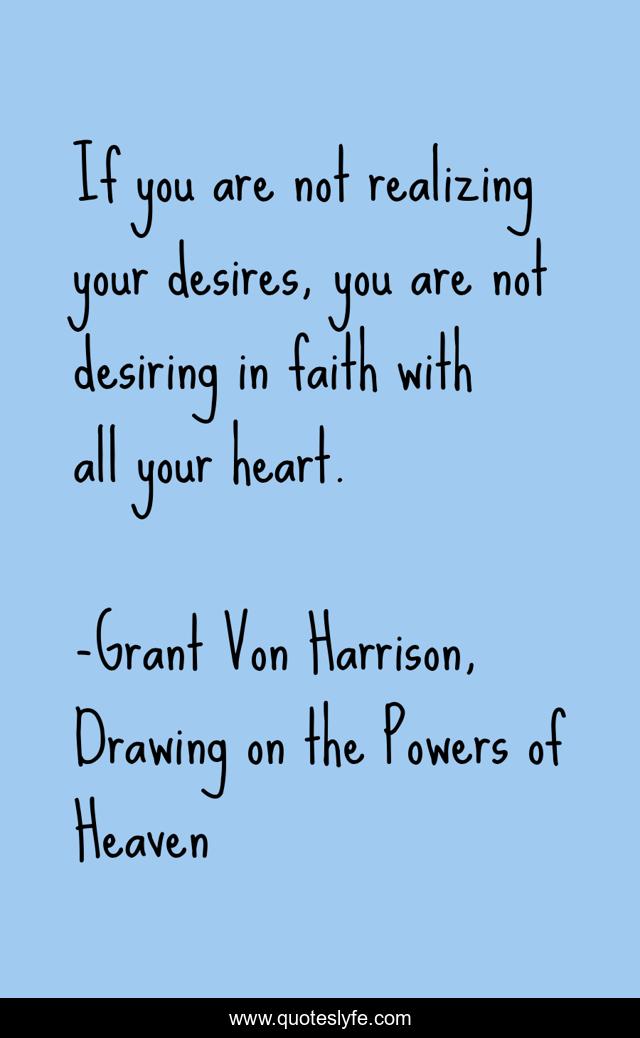 If you are not realizing
your desires, you are not
desiring in faith with
all your heart.
-Grant Von Harrison,
Drawing on the Powers of
Heaven
www.quoteslyfe.com